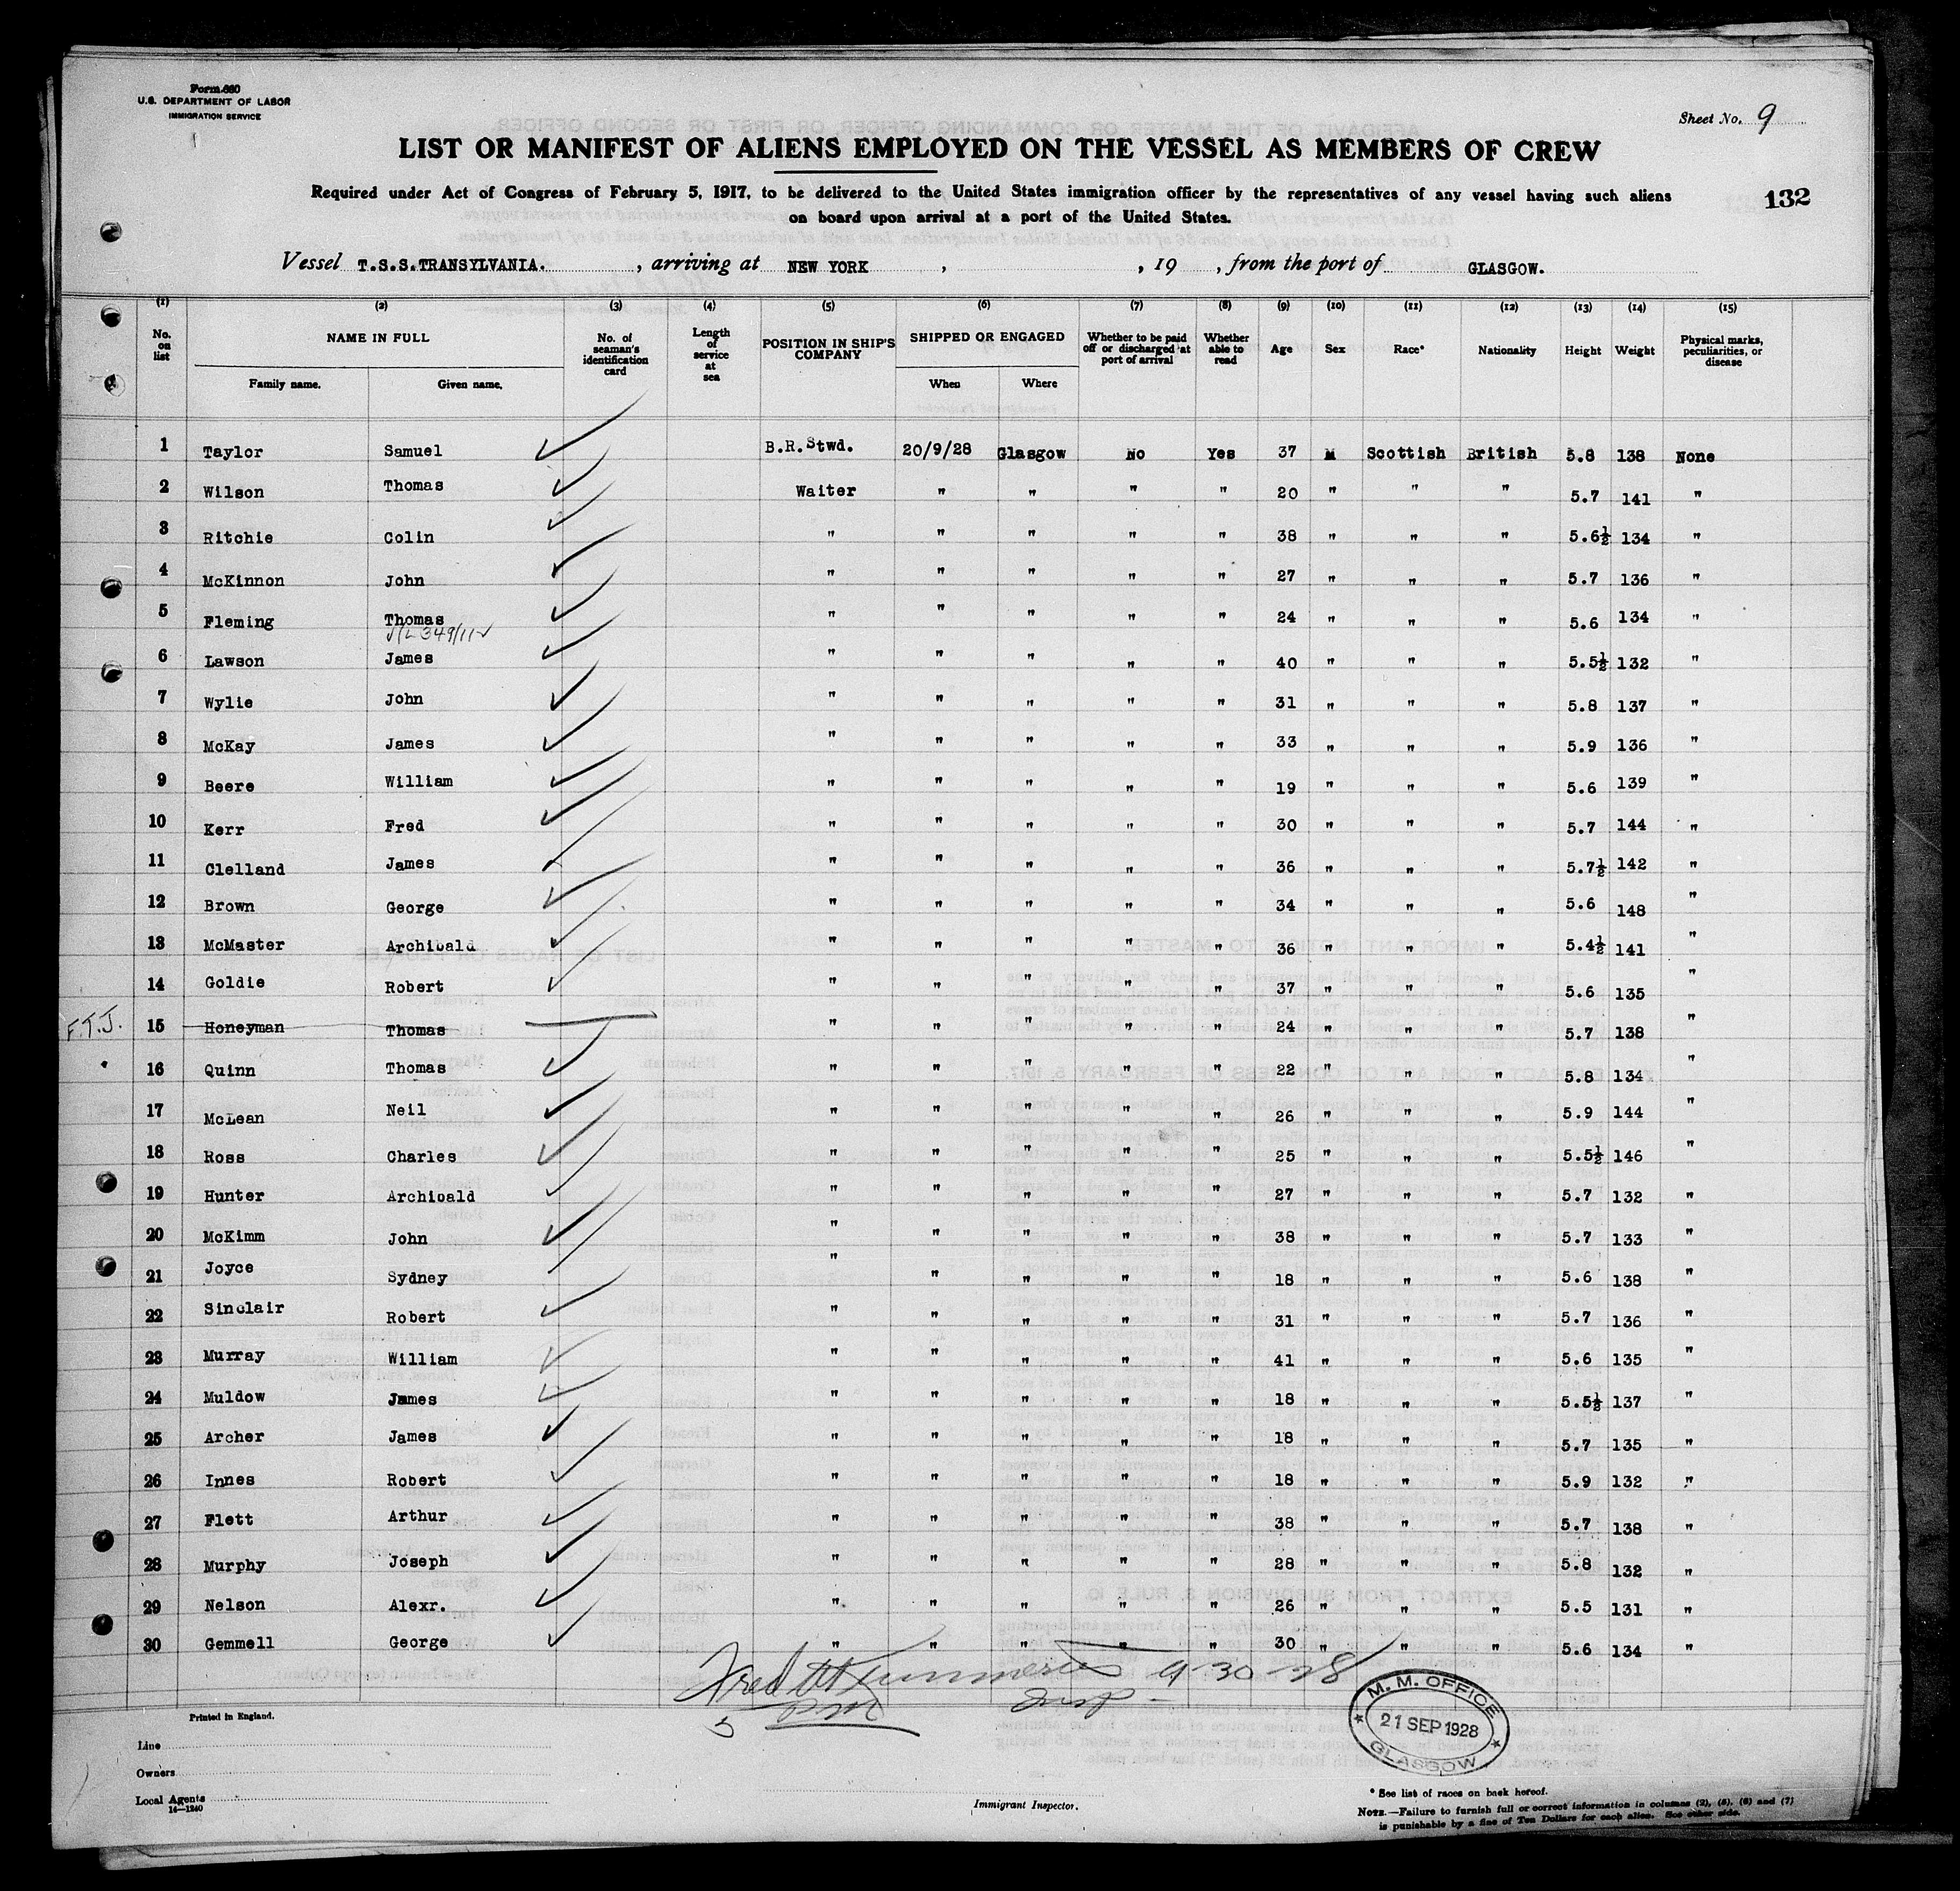 Form 680
U.S. DEPARTMENT OF LABOR
IMMIGRATION SERVICE
Sheet No. 9
LIST OR MANIFEST OF ALIENS EMPLOYED ON THE VESSEL AS MEMBERS OF CREW
Required under Act of Congress of February 5, 1917, to be delivered to the United States immigration officer by the representatives of any vessel having such aliens
on board upon arrival at a port of the United States.
132
Vessel T.S.S.TRANSYLVANIA. , arriving at NEW YORK , , 19 , from the port of GLASGOW.
(1) (2) (3) (4) (5) (6) (7) (8) (9) (10) (11) (12) (13) (14) (15)
No. on list NAME IN FULL Family name. Given name. No. of seaman's identification card Length of service at sea POSITION IN SHIP'S COMPANY SHIPPED OR ENGAGED When Where Whether to be paid off or discharged at port of arrival Whether able to read Age Sex Race* Nationality Height Weight Physical marks, peculiarities, or disease
1 Taylor Samuel B.R.Stwd. 20/9/28 Glasgow No Yes 37 M Scottish British 5.8 138 None
2 Wilson Thomas Waiter " " " " 20 " " " 5.7 141 "
3 Ritchie Colin " " " " " 38 " " " 5.6½ 134 "
4 McKinnon John " " " " " 27 " " " 5.7 136 "
5 Fleming Thomas " " " " " 24 " " " 5.6 134 "
6 Lawson James " " " " " 40 " " " 5.5½ 132 "
7 Wylie John " " " " " 31 " " " 5.8 137 "
8 McKay James " " " " " 33 " " " 5.9 136 "
9 Beere William " " " " " 19 " " " 5.6 139 "
10 Kerr Fred " " " " " 30 " " " 5.7 144 "
11 Clelland James " " " " " 36 " " " 5.7½ 142 "
12 Brown George " " " " " 34 " " " 5.6 148 "
13 McMaster Archibald " " " " " 36 " " " 5.4½ 141 "
14 Goldie Robert " " " " " 37 " " " 5.6 135 "
F.T.J. 15 Honeyman Thomas " " " " " 24 " " " 5.7 138 "
16 Quinn Thomas " " " " " 22 " " " 5.8 134 "
17 McLean Neil " " " " " 26 " " " 5.9 144 "
18 Ross Charles " " " " " 25 " " " 5.5½ 146 "
19 Hunter Archibald " " " " " 27 " " " 5.7 132 "
20 McKimm John " " " " " 38 " " " 5.7 133 "
21 Joyce Sydney " " " " " 18 " " " 5.6 138 "
22 Sinclair Robert " " " " " 31 " " " 5.7 136 "
23 Murray William " " " " " 41 " " " 5.6 135 "
24 Muldow James " " " " " 18 " " " 5.5½ 137 "
25 Archer James " " " " " 18 " " " 5.7 135 "
26 Innes Robert " " " " " 18 " " " 5.9 132 "
27 Flett Arthur " " " " " 38 " " " 5.7 138 "
28 Murphy Joseph " " " " " 28 " " " 5.8 132 "
29 Nelson Alexr. " " " " " 26 " " " 5.5 131 "
30 Gemmell George " " " " " 30 " " " 5.6 134 "
9-30-28
Insp
M. M. OFFICE
21 SEP 1928
GLASGOW
Printed in England.
Line
Owners
Local Agents
14—1240
Immigrant Inspector.
* See list of races on back hereof.
NOTE.—Failure to furnish full or correct information in columns (2), (5), (6) and (7)
is punishable by a fine of Ten Dollars for each alien. See other side.